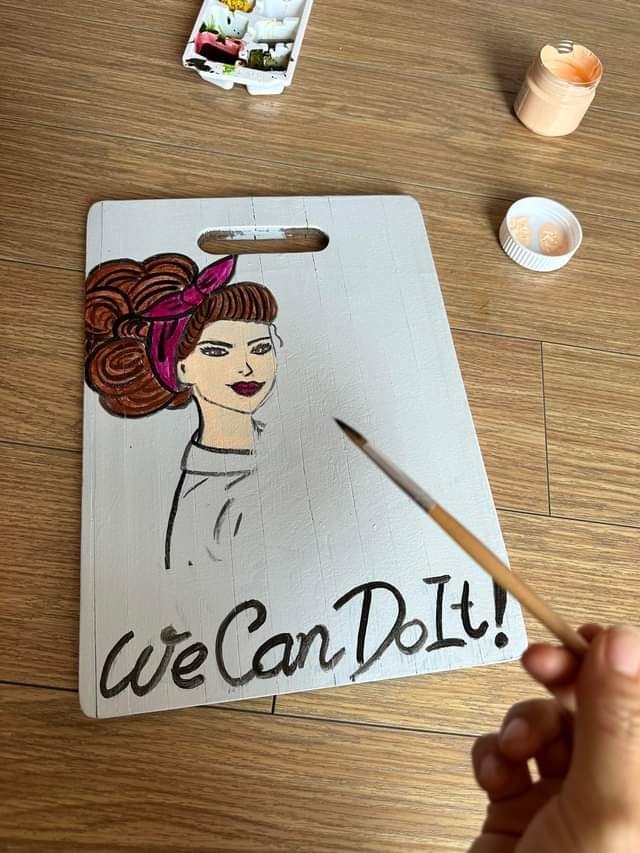 We Can Do It!